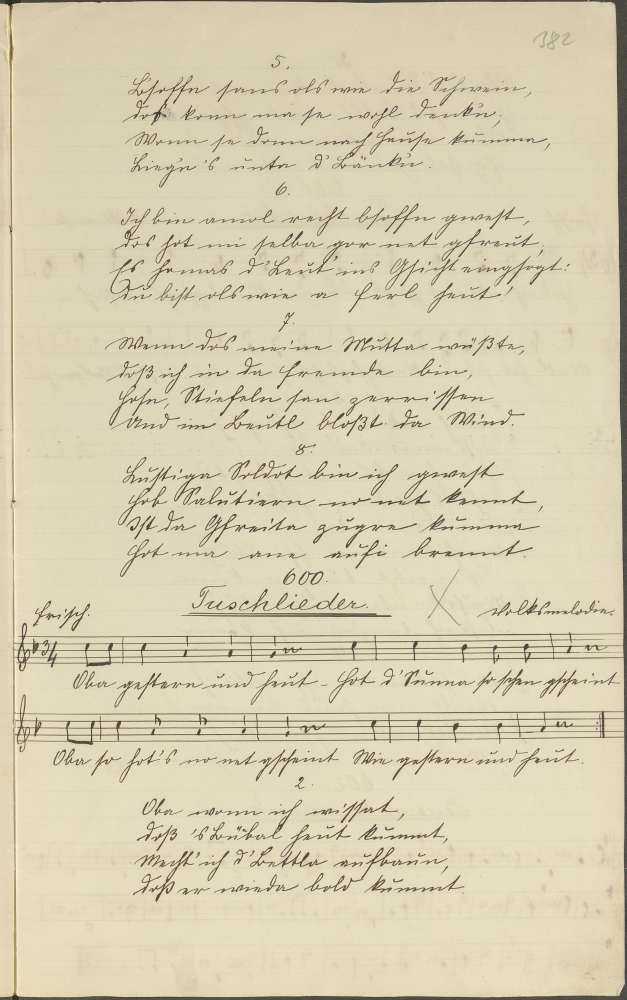 382
5.
Bsoffn sans ols wie die Schwein,
dos konn ma se wohl denk'n;
Wonn se donn nach Hause kumma,
Lieg'n 's unta d' Bänk'n.
6.
Ich bin amol recht bsoffn gwest,
Dos hot mi selba gor net gfreut;
Es homas d' Leut' ins Gsicht eingsogt:
Du bist ols wie a Ferl heut'!
7.
Wenn dos meine Mutta wüßte,
Doß ich in da Fremde bin,
Hosn, Stiefeln san zerrissen
Und im Beutl bloßt da Wind.
8.
Lustiga Soldot bin ich gwest
Hob Salutiern no net kennt,
Ist da Gfreita zugre kumma
Hot ma ane aufi brennt.
600.
Tuschlieder.
Frisch.
Volksmelodie.
3/4
Oba gestern und heut - Hot d' Sunna so schen gscheint
Oba so hot's no net gscheint Wie gestern und heut.
2.
Oba wonn ich wissat,
Doß 's Bübal heut kummt,
Mecht' ich d' Bettla aufbaun,
Doß er wieda bold kummt.